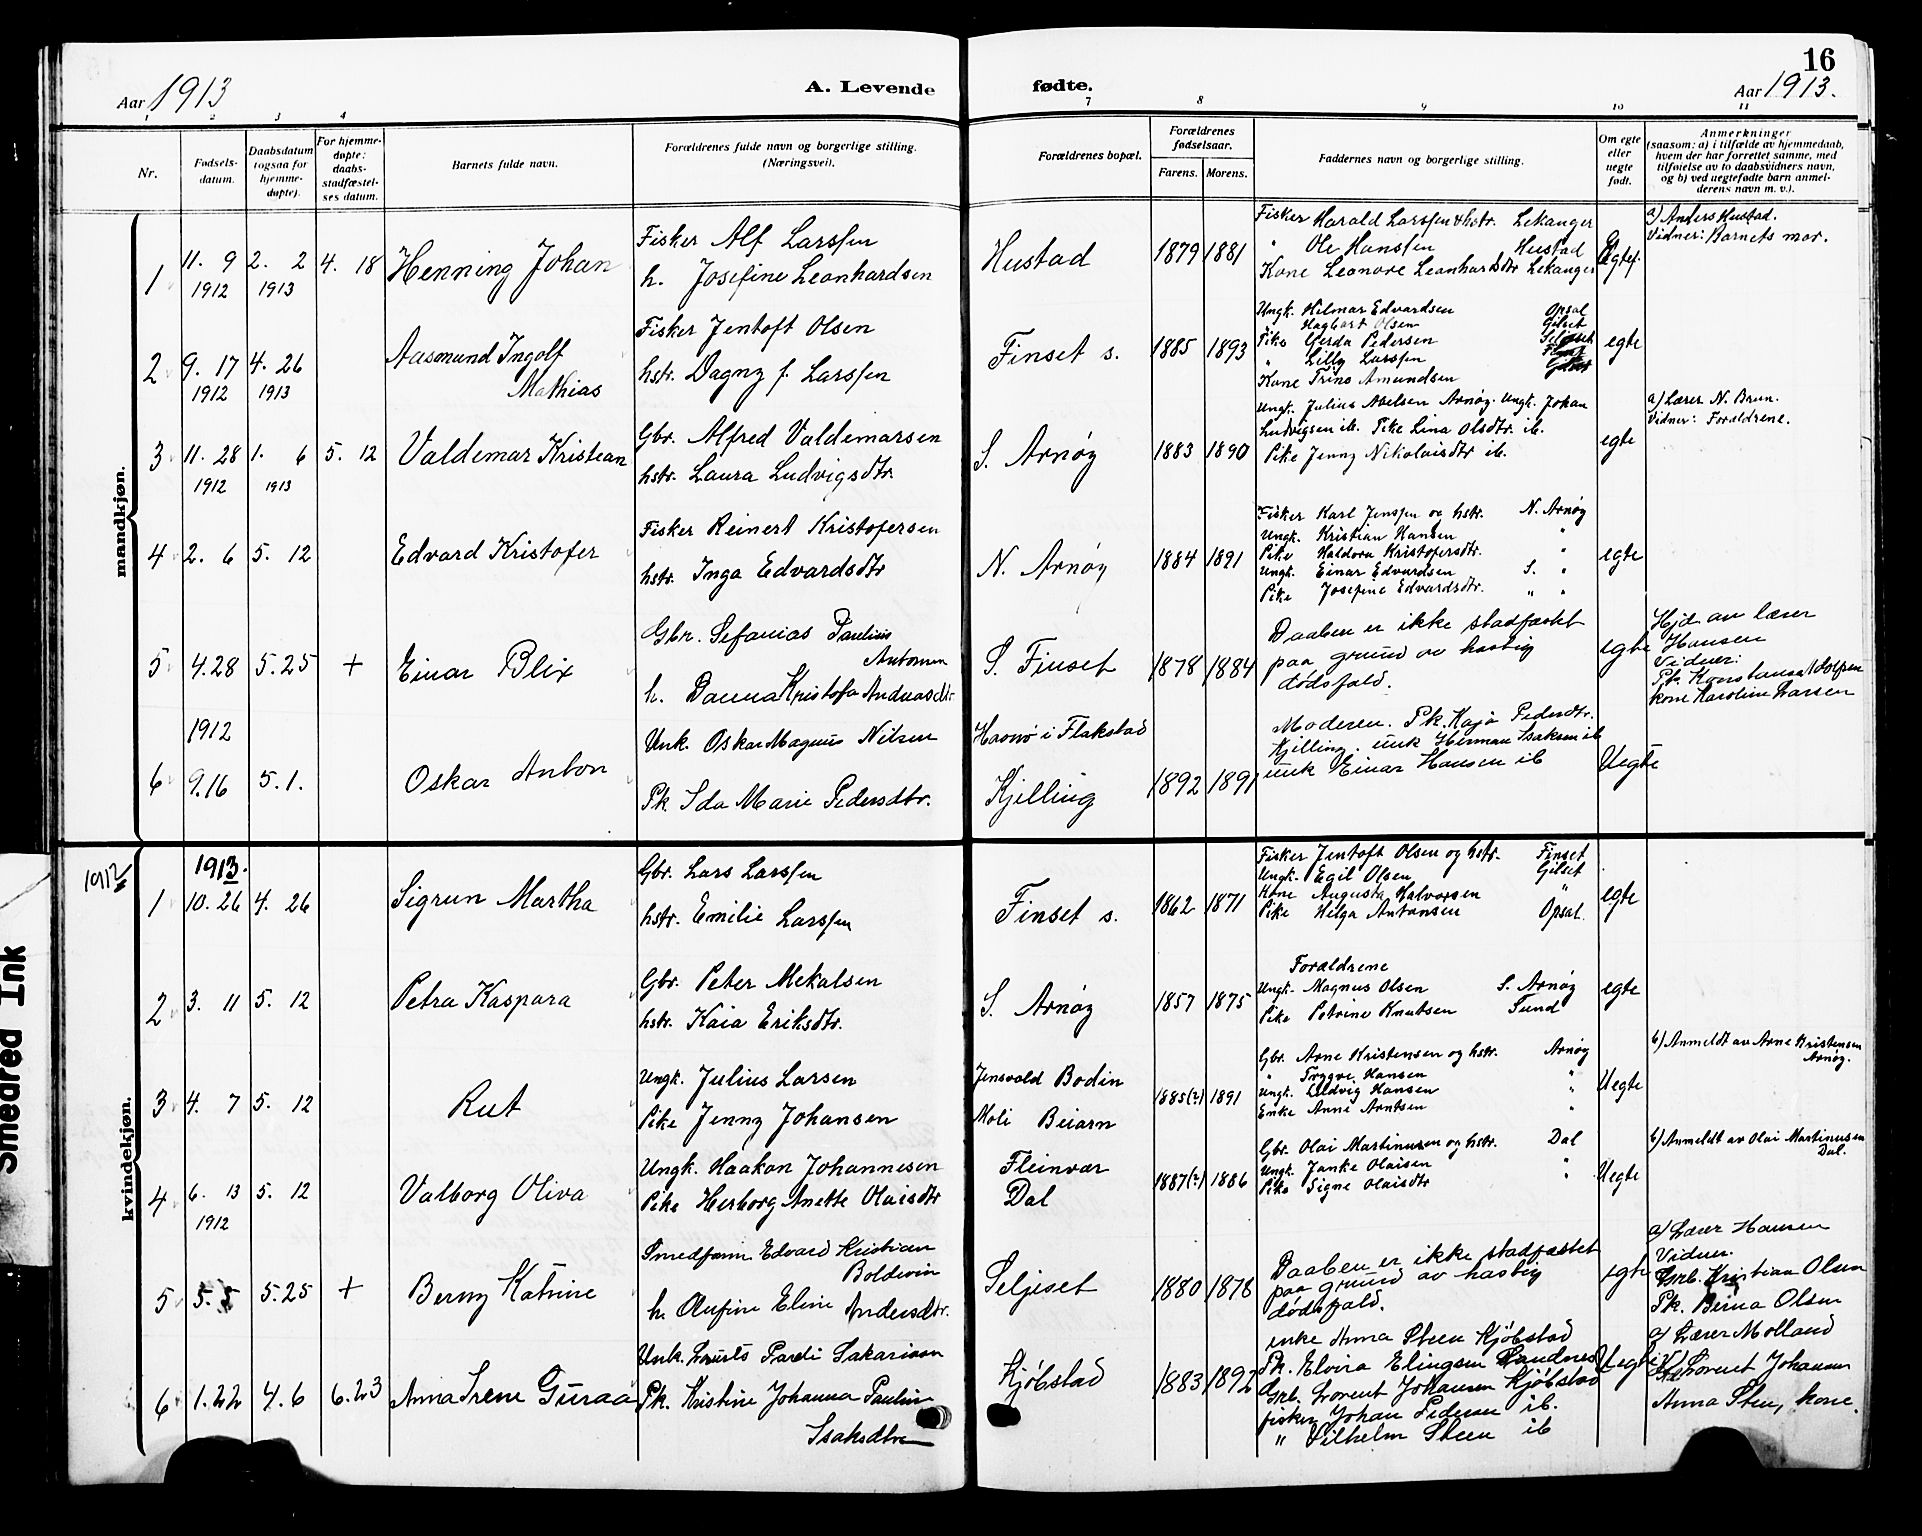 16
Aar 1913
A. Levende fødte.
Aar 1913.
1 2 3 4 7 8 9 10 11
Nr.
Fødsels-
datum.
Daabsdatum
(ogsaa for
hjemme-
døpte).
For hjemme-
døpte:
daabs-
stadfæstel-
ses datum.
Barnets fulde navn.
Forældrenes fulde navn og borgerlige stilling.
(Næringsvei).
Forældrenes bopæl.
Forældrenes
fødselsaar.
Farens. Morens.
Faddernes navn og borgerlige stilling.
Om egte
eller
uegte
født.
Anmerkninger
(saasom: a) i tilfælde av hjemmedaab,
hvem der har forrettet samme, med
tilføielse av to daabsvidners navn,
og b) ved uegtefødte barn anmel-
derens navn m. v.).
mandkjøn.
1 11. 9 2. 2 4. 18 Henning Johan
1912 1913
Fisker Alf Larssen
h. Josefine Leonhardsen
Hustad 1879 1881
Fisker Harald Larssen & hstr. Lekanger
" Ole Hanssen Hustad
Kone Leonore Leonhardsdtr Lekanger
Egtef.
a) Anders Hustad.
Vidner: Barnets mor.
2 9. 17 4. 26 Aasmund Ingolf
1912 1913 Mathias
Fisker Jentoft Olsen
hstr. Dagny f. Larssen
Finset s. 1885 1893
Ungk. Hilmar Edvardsen Opsal
Hagbart Olsen Gilset
Pike Gerda Pedersen
" Lilly Larssen
Kone Trine Amundsen
egte
3 11. 28 1. 6 5. 12 Valdemar Kristean
1912 1913
Gbr. Alfred Valdemarsen
hstr. Laura Ludvigsdtr.
S. Arnøy 1883 1890
Ungk. Julius Abelsen Arnøy. Ungk. Johan
Ludvigsen ib. Pike Lina Olsdtr. ib.
Pike Jenny Nikolaisdtr ib.
egte
a) Lærer N. Brun.
Vidner: Forældrene.
4 2. 6 5. 12 Edvard Kristofer
Fisker Reinert Kristofersen
hstr. Inga Edvardsdtr
N. Arnøy 1884 1891
Fisker Karl Jenssen og hstr. N. Arnøy
Ungk. Kristian Hansen "
Pike Haldora Kristofersdtr. "
Ungk. Einar Edvardsen S. "
Pike Josefine Edvardsdtr. " "
egte
5 4.28 5.25 + Einar Blix
Gbr. Sefanias Paulius
Antonsen
h. Danna Kristofa Andreasdtr
S. Finset 1878 1884
Daaben er ikke stadfæstet
paa grund av hastig
dødsfald.
egte
Hjd av lærer
Hansen
Vidner:
Pk. Konstanse Adolfsen
kone Karoline Larsen
1912
6 9.16 5.1. Oskar Anton
Unk. Oskar Magnus Nilsen
Pk Ida Marie Pedersdtr.
Havnø i Flakstad
Kjelling 1892 1891
Moderen. Pk. Kaja Pedersdtr.
Kjelling. unk Herman Isaksen ib
unk Einar Hansen ib
Uegte
kvindekjøn.
1912
1913.
1 10. 26 4. 26 Sigrun Martha
Gbr. Lars Larssen
hstr. Emilie Larssen
Finset s. 1862 1871
Fisker Jentoft Olsen og hstr. Finset
Ungk. Egil Olsen Gilset
Kone Augusta Halvorsen "
Pike Helga Antonsen Opsal.
egte
2 3. 11 5. 12 Petra Kaspara
Gbr. Peter Mekalsen
hstr. Kaia Eriksdtr.
S. Arnøy 1857 1875
Forældrene
Ungk. Magnus Olsen S. Arnøy
Pike Petrine Knutsen Sund
egte
3 4. 7 5. 12 Rut
Ungk. Julius Larsen
Pike Jenny Johansen
Jensvold Bodin
Moli Beiarn
1885(?) 1891
Gbr. Arne Kristensen og hstr. Arnøy
" Trygve Hansen "
Ungk. Ludvig Hansen "
Enke Anne Arntsen "
Uegte
b) Anmeldt av Arne Kristensen
Arnøy.
4 6. 13 5. 12 Valborg Oliva
1912
Ungk. Haakon Johannesen
Pike Herborg Anette Olaisdtr
Fleinvær
Dal
1887(?) 1886
Gbr. Olai Martinusen og hstr. Dal
Ungk. Janke Olaisen "
Pike Signe Olaisdtr "
Uegte
b) Anmeldt av Olai Martinusen
Dal.
5 5. 5 5.25 + Berny Katrine
Edvard Kristian
Boldevin
h. Olufine Eline Andersdtr.
Seljeset 1880 1878
Daaben er ikke stadfæstet
paa grund av hastig
dødsfald.
egte
a) Lærer Hansen
Vidner.
Grb. Kristian Olsen
Pk. Berna Olsen
6 1.22 4.6 6.23 Anna Irene
Unk. Sakariassen
Pk. Kristine Johanna Pauline
Isaksdtr
Kjøbstad 1883 1892
enke Anna Steen Kjøbstad
Pk. Elvira Elingsen Sandnes
Grb. Lorent Johansen Kjøbstad
fisker Johan Pedersen ib.
" Vilhelm Steen ib
Uegte
a) Lærer Molland
Lorent Johansen
Anna Steen, kone.
Smeared Ink